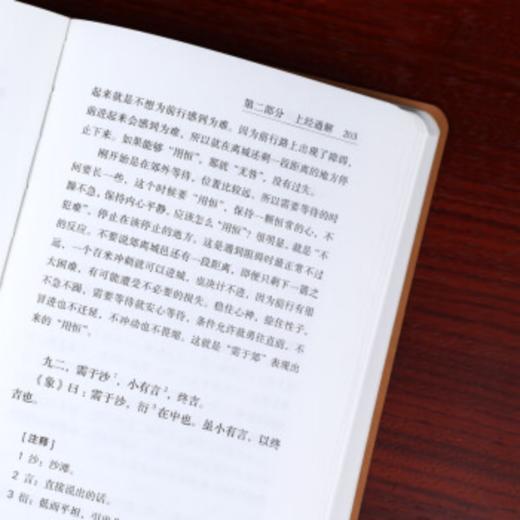 第二部分 上经通解 203
起来就是不想为前行感到为难。因为前行路上出现了障碍,
前进起来会感到为难,所以就在离城还剩一段距离的地方停
止下来。如果能够“用恒”,那就“无咎”,没有过失。
刚开始是在郊外等待,位置比较远,所以需要等待的时
间要长一些,这个时候要“用恒”,保持一颗恒常的心,不
躁不急,保持内心平静。应该怎么“用恒”?很明显,就是“不
犯难”,停止在该停止的地方。这是遇到阻碍时最正常不过
的反应。不要说郊离城邑还有一段距离,即便只剩下一箭之
远,一个百米冲刺就可以进城,也决计不进,因为前行有很
大困难,有可能遭受不必要的损失。稳住心神,捺住性子,
不急不躁,需要等待就安心等待,条件允许就勇往直前,不
冒进也不迂延,不冲动也不畏缩。这就是“需于郊”表现出
来的“用恒”。
九二,需于沙1,小有言2,终吉。
《象》曰:需于沙,衍3在中也。虽小有言,以终
吉也。
[注释]
1 沙:沙滩。
2 言:直接说出的话。
3 衍:低而平坦,引出